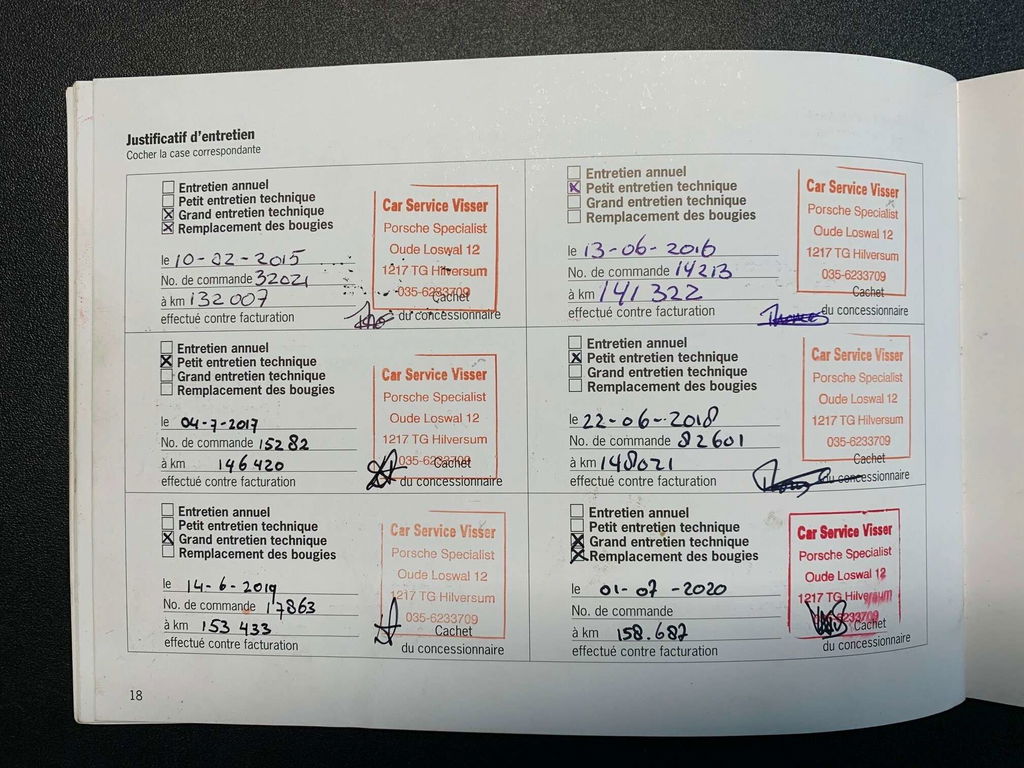 Justificatif d'entretien
Cocher la case correspondante
Entretien annuel
Petit entretien technique
Grand entretien technique
Remplacement des bougies
le 10-02-2015
No. de commande 32021
à km 132007
effectué contre facturation
Car Service Visser
Porsche Specialist
Oude Loswal 12
1217 TG Hilversum
035-6233709
Cachet
du concessionnaire
Entretien annuel
Petit entretien technique
Grand entretien technique
Remplacement des bougies
le 13-06-2016
No. de commande 14213
à km 141 322
effectué contre facturation
Car Service Visser
Porsche Specialist
Oude Loswal 12
1217 TG Hilversum
035-6233709
Cachet
du concessionnaire
Entretien annuel
Petit entretien technique
Grand entretien technique
Remplacement des bougies
le 04-7-2017
No. de commande 15282
à km 146420
effectué contre facturation
Car Service Visser
Porsche Specialist
Oude Loswal 12
1217 TG Hilversum
035-6233709
Cachet
du concessionnaire
Entretien annuel
Petit entretien technique
Grand entretien technique
Remplacement des bougies
le 22-06-2018
No. de commande 82601
à km 148021
effectué contre facturation
Car Service Visser
Porsche Specialist
Oude Loswal 12
1217 TG Hilversum
035-6233709
Cachet
du concessionnaire
Entretien annuel
Petit entretien technique
Grand entretien technique
Remplacement des bougies
le 14-6-2019
No. de commande 17863
à km 153 433
effectué contre facturation
Car Service Visser
Porsche Specialist
Oude Loswal 12
1217 TG Hilversum
035-6233709
Cachet
du concessionnaire
Entretien annuel
Petit entretien technique
Grand entretien technique
Remplacement des bougies
le 01-07-2020
No. de commande
à km 158.687
effectué contre facturation
Car Service Visser
Porsche Specialist
Oude Loswal 12
1217 TG Hilversum
6233709
Cachet
du concessionnaire
18